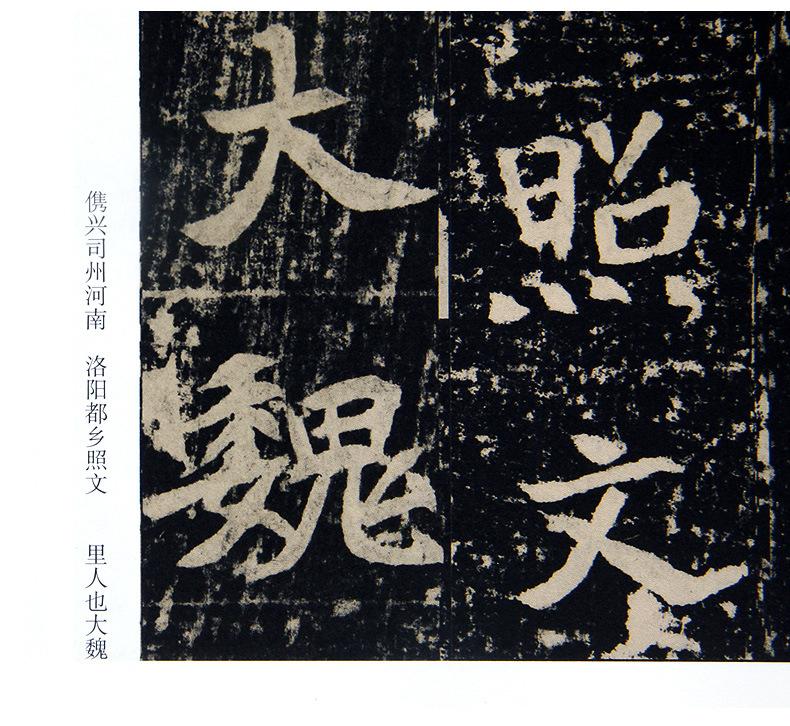 照文
大魏
儁兴司州河南 洛阳都乡照文 里人也大魏